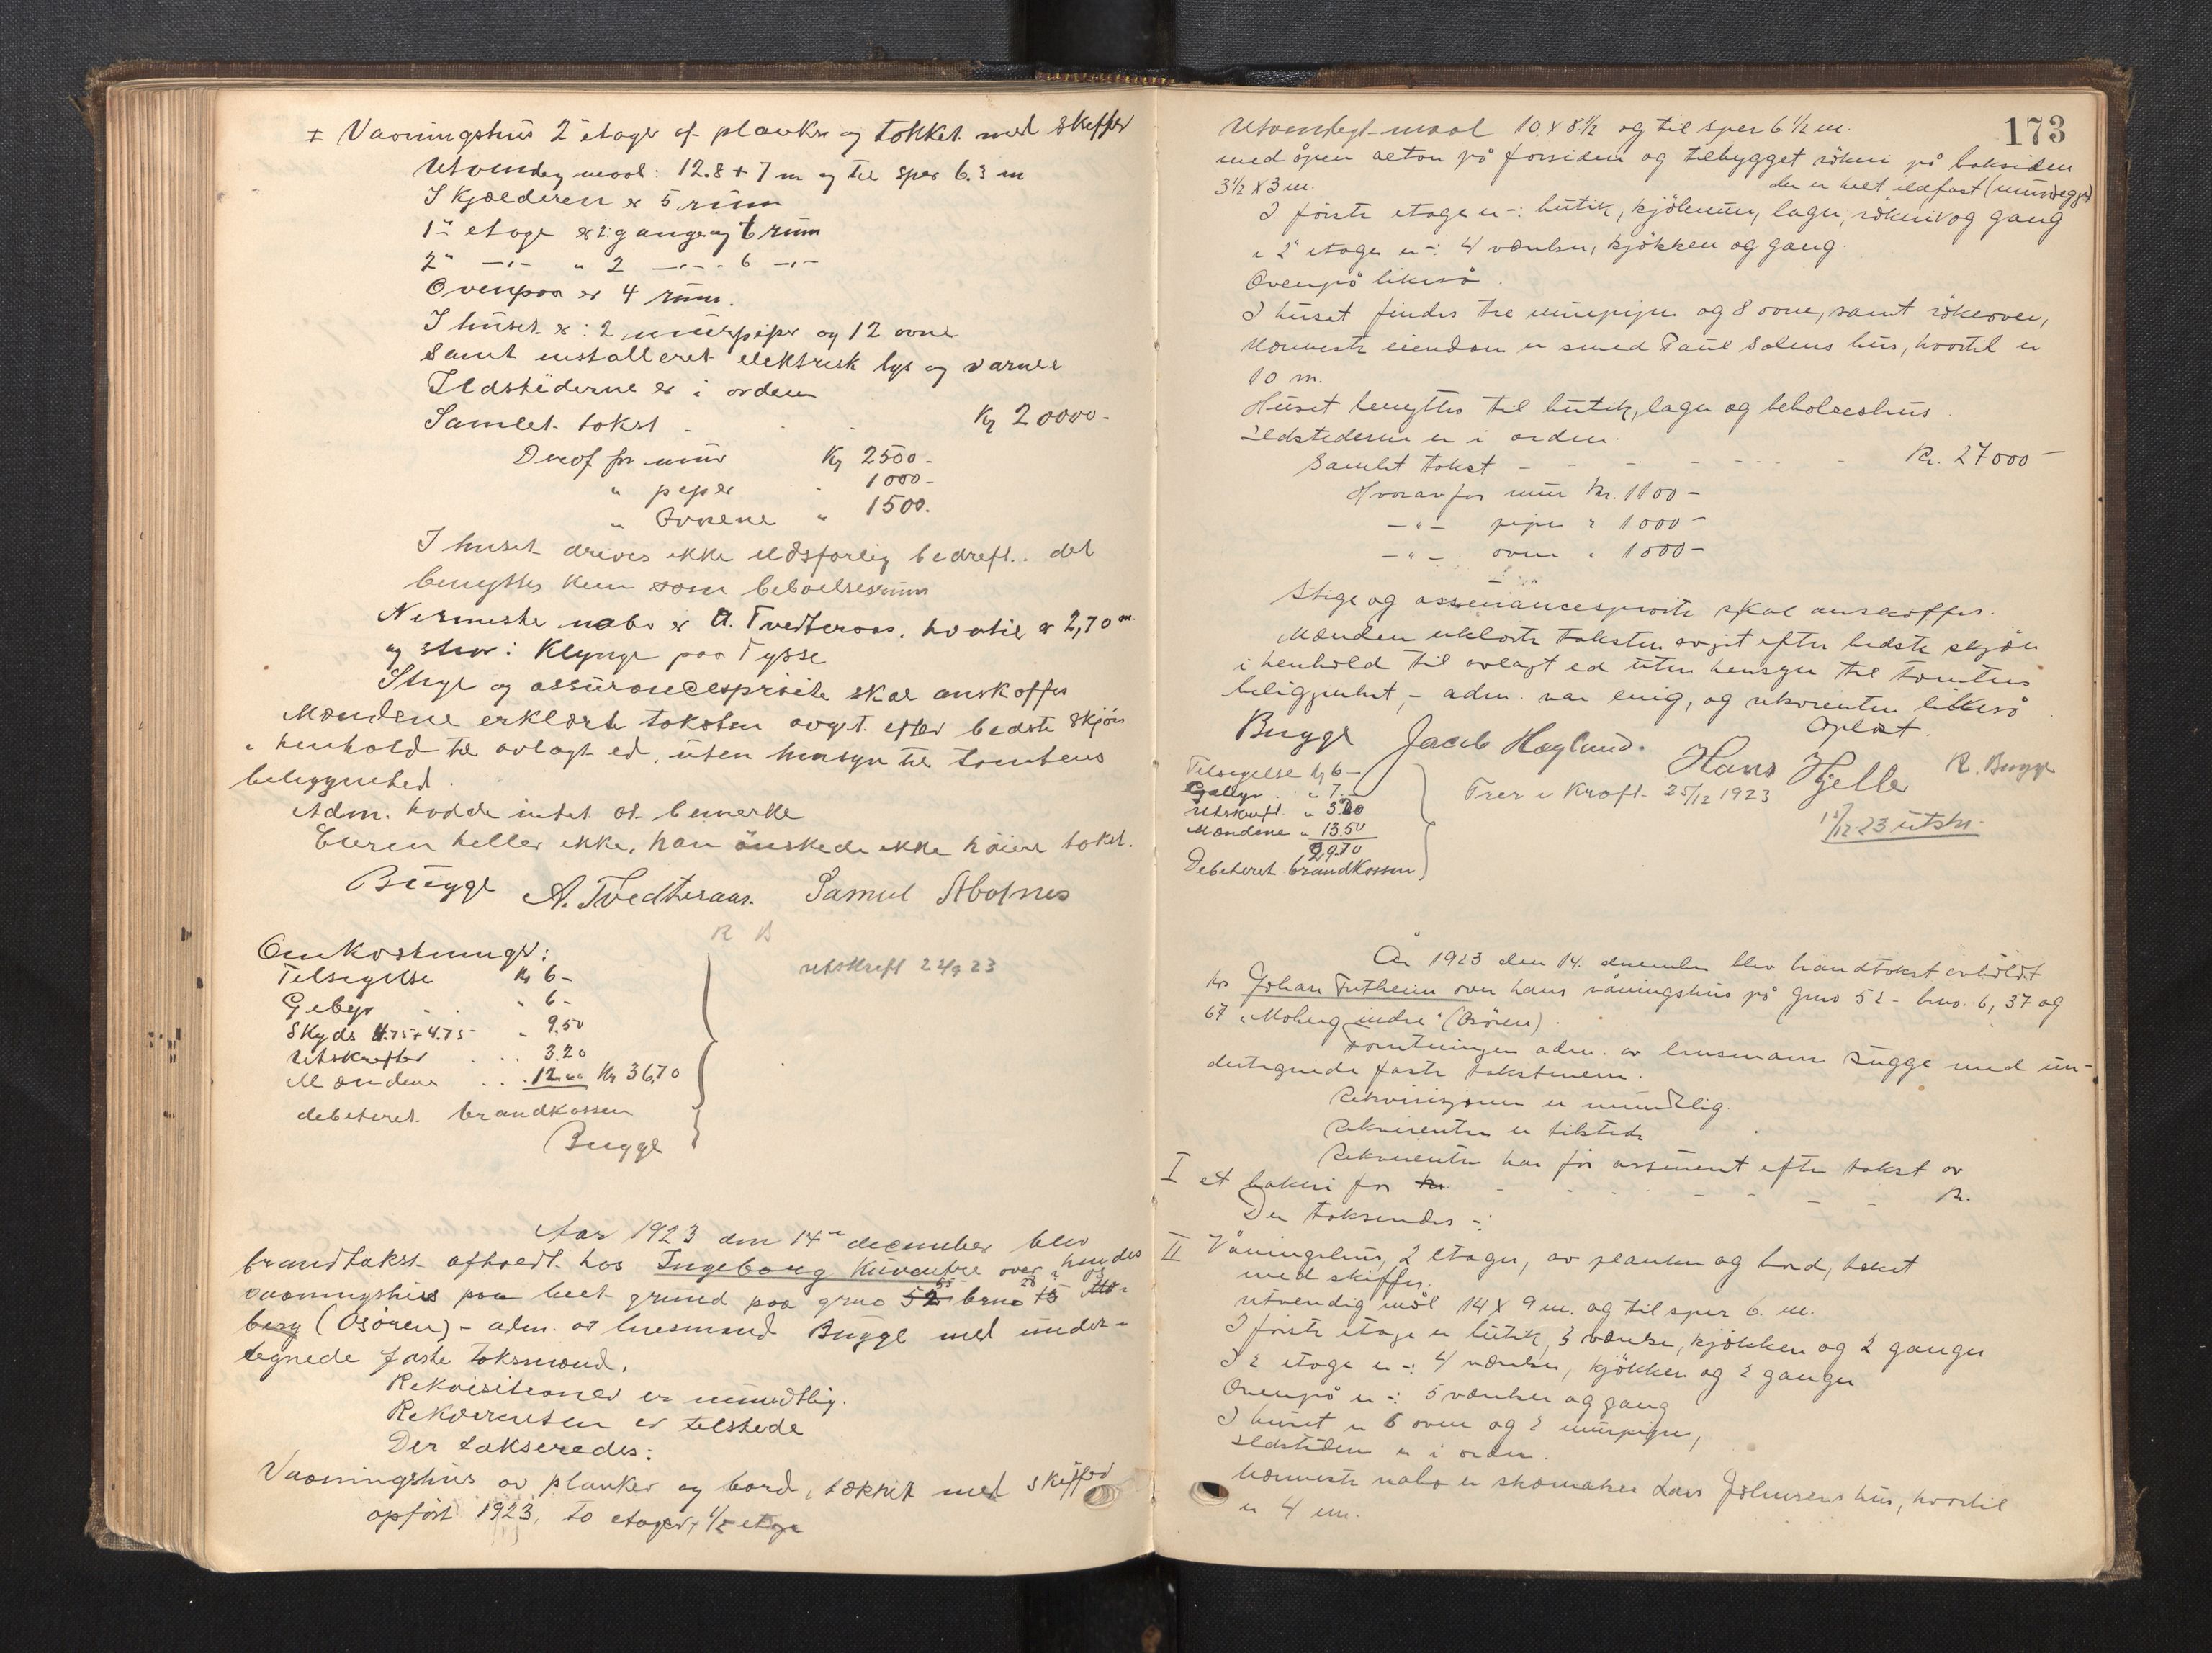 I Vaaningshus 2 etager af planker og tækket med skeffer
Utvendig maal: 12.8 + 7 m og til sper 6.3 m
I Kjælderen er 5 rum
1ste etage er 2 gange og 6 rum
2" —"— " 2 —"— 6 —"—
Ovenpaa er 4 rum.
I huset er: 2 murpiper og 12 ovne
samt installeret elektrisk lys og varme
Ildstederne er i orden
Samlet takst - Kr 20000-
Deraf for mur Kr 2500-
" piper " 1000-
" Ovnene " 1500.
I huset drives ikke ildsfarlig bedreft.. det
benyttes kun som beboelsesrum
Nermeste nabo er A. Tvedteraas, hvortil er 2,70 m
og staar i Klynge paa Tysse
Stige og assurancesprøite skal anskaffes
Mændene erklærte taksten avgit efter bedste skjøn
i henhold til avlagt ed, uten hensyn til tomtens
beliggenhed.
Adm. hadde intet at bemerke
Eieren heller ikke, han ønskede ikke høiere takst.
Bugge A. Tvedteraas. Samuel Aboland
R B
Omkostninger:
Tilsigelse Kr 6-
Gebyr " 6-
Skyds 4.75+4.75 " 9.50
Utskrifter . . . 3.20
Mændene . . . 12.00 Kr 36,70
debeteret brandkassen
Bugge
utskrift 22/9 23
Aar 1923 den 14de december blev
brandtakst afholdt hos Ingeborg Kuventre over hendes
vaaningshus paa leiet grund paa gno 52 55 brno 15 28 Mo-
berg (Osøren) - adm. av lensmand Bugge med under-
tegnede faste taksmænd.
Rekvisitionen er mundtlig.
Rekvirenten er tilstede
Der takseredes:
Vaaningshus av planker og bord, tækket med skiffer
opført 1923, to etager + 1/2 etage
173
Utvendigt maal 10 x 8 1/2 og til sper 6 1/2 m.
med åpen altan på forsiden og tilbygget røkeri på baksiden
3 1/2 x 3 m. der er helt ildfast (murvegger)
I første etage er -: butik, kjølerum, lager, røkeri og gang
i 2" etage er -: 4 værelser, kjøkken og gang.
Ovenpå likeså.
I huset findes tre murpiper og 8 ovne, samt røkeovn,
nærmeste eiendom er smed Paul Solens hus, hvortil er
10 m.
Huset benyttes til butik, lager og beboelseshus.
Ildstederne er i orden.
Samlet takst - - - - - - Kr. 27000-
Hvorav for mur Kr. 1100-
—"— piper " 1000-
—"— ovne " 1000-
Stige og assurancesprøite skal anskaffes.
Mændene erklærte taksten avgit efter bedste skjøn
i henhold til avlagt ed uten hensyn til tomtens
beliggenhet, - adm. var enig, og rekvirenten likeså
Oplæst.
Bugge Jacob Hoglund. Hans Hjelle R. Bugge
Tilsigelse Kr 6-
Gebyr " 7.-
Utskrift " 3.20
Mændene " 13.50
29.70
Debeteret brandkassen
Trer i Kraft 25/12 1923
15/12 23 utskr.
År 1923 den 14. december blev brandtakst avholdt
hos Johan Tutheim over hans våningshus på gno 52 - bno. 6, 37 og
67 "Moberg indre" (Osøren).
Forretningen adm. av lensmann Bugge med un-
dertegnede faste takstmenn.
Rekvisisjonen er mundtlig.
Rekvirenten er tilstede
Rekvirenten har før assurert efter takst av
I et bakeri for kr. - - - - - - Kr.
Der takserdes -:
II Våningshus, 2 etager, av planker og bord, tekket
med skiffer.
utvendig mål 14 x 9 m. og til sper 6. m.
I første etage er butik, 3 værelse, kjøkken og 2 ganger
I 2 etage er -: 4 værelser, kjøkken og 2 ganger
Ovenpå er -: 5 værelser og gang
I huset er 6 ovne og 2 murpiper,
Ildsteden er i orden.
Nærmeste nabo er skomaker Lars Johnsens hus, hvortil
er 4 m.